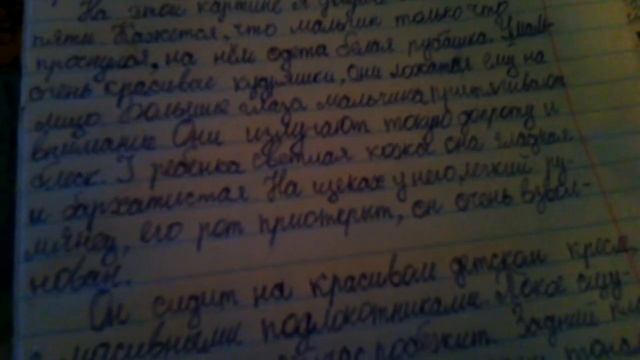 На этой картине я
пяти. Кажется, что мальчик только что
проснулся, на нём одета белая рубашка. У маль-
очень красивые кудряшки, они ложатся ему на
лицо. Большие глаза мальчика притягивают
внимание. Они излучают такую доброту и
блеск. У ребенка светлая кожа она гладкая
и бархатистая. На щеках у него легкий ру-
мянец, его рот приоткрыт, он очень взвол-
нован.
Он сидит на красивом детском кресле
с масивными подлокотниками.
побежит. Задний